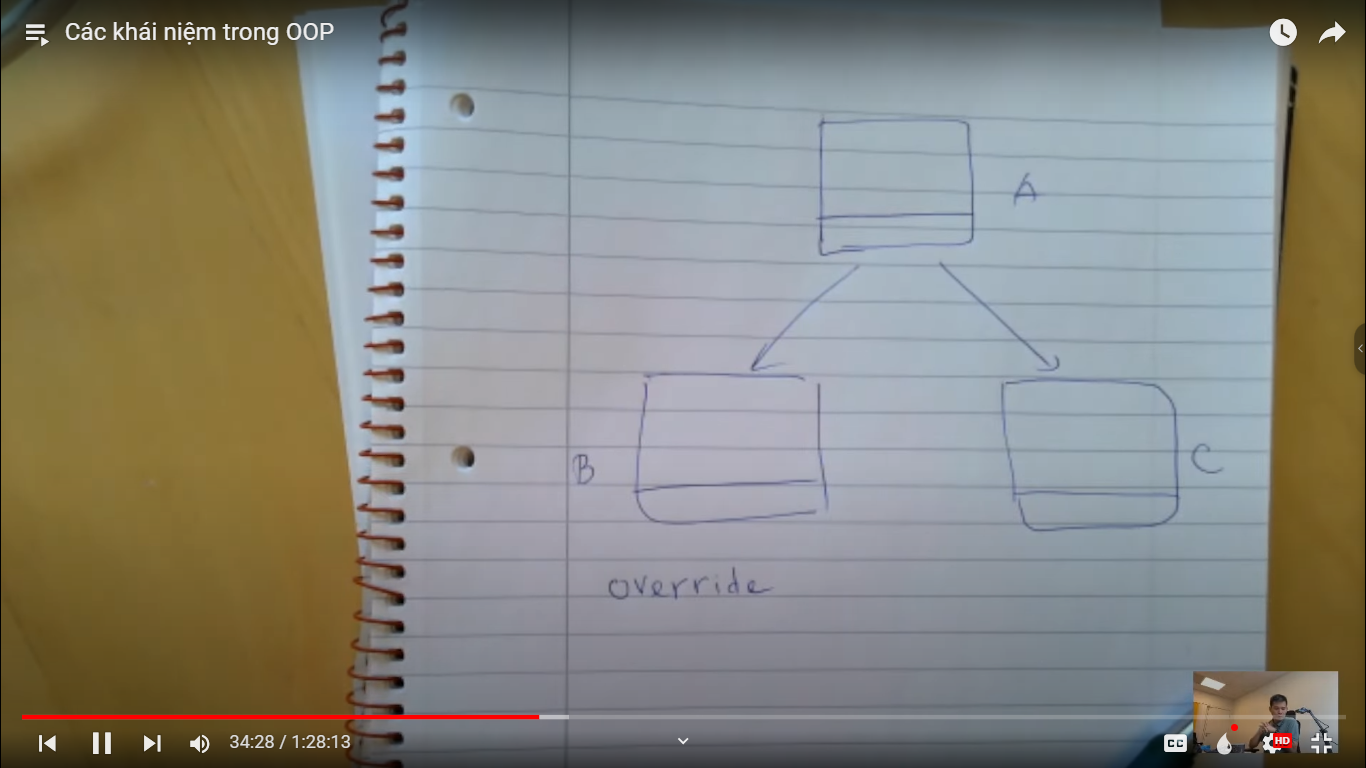 Các khái niệm trong OOP
A
B
C
override
34:28 / 1:28:13
CC
HD